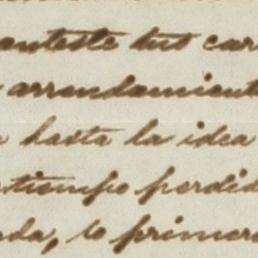 anteste tus car
arrendamient
hasta la idea
tiempo perdid
da, lo primer